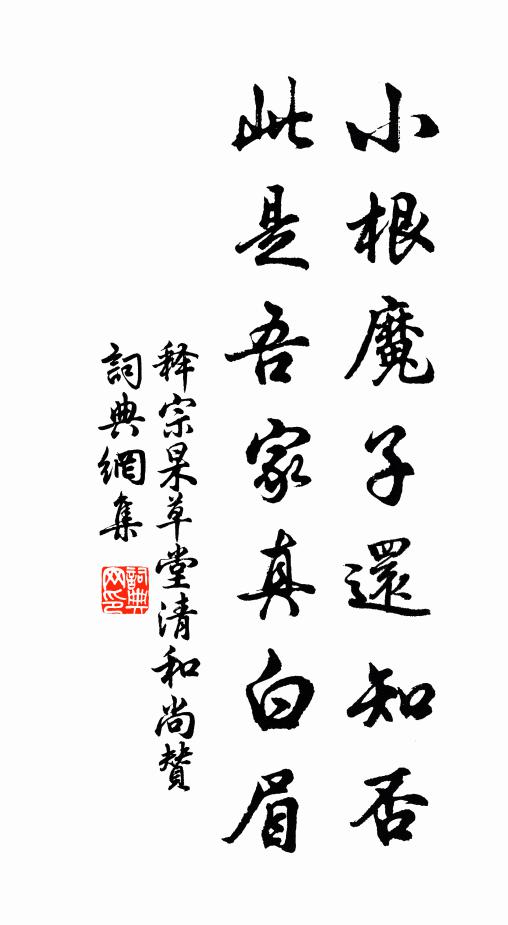 小根魔子還知否
此是吾家真白眉
释宗杲草堂清和尚贊
詞典網集
詞典网印